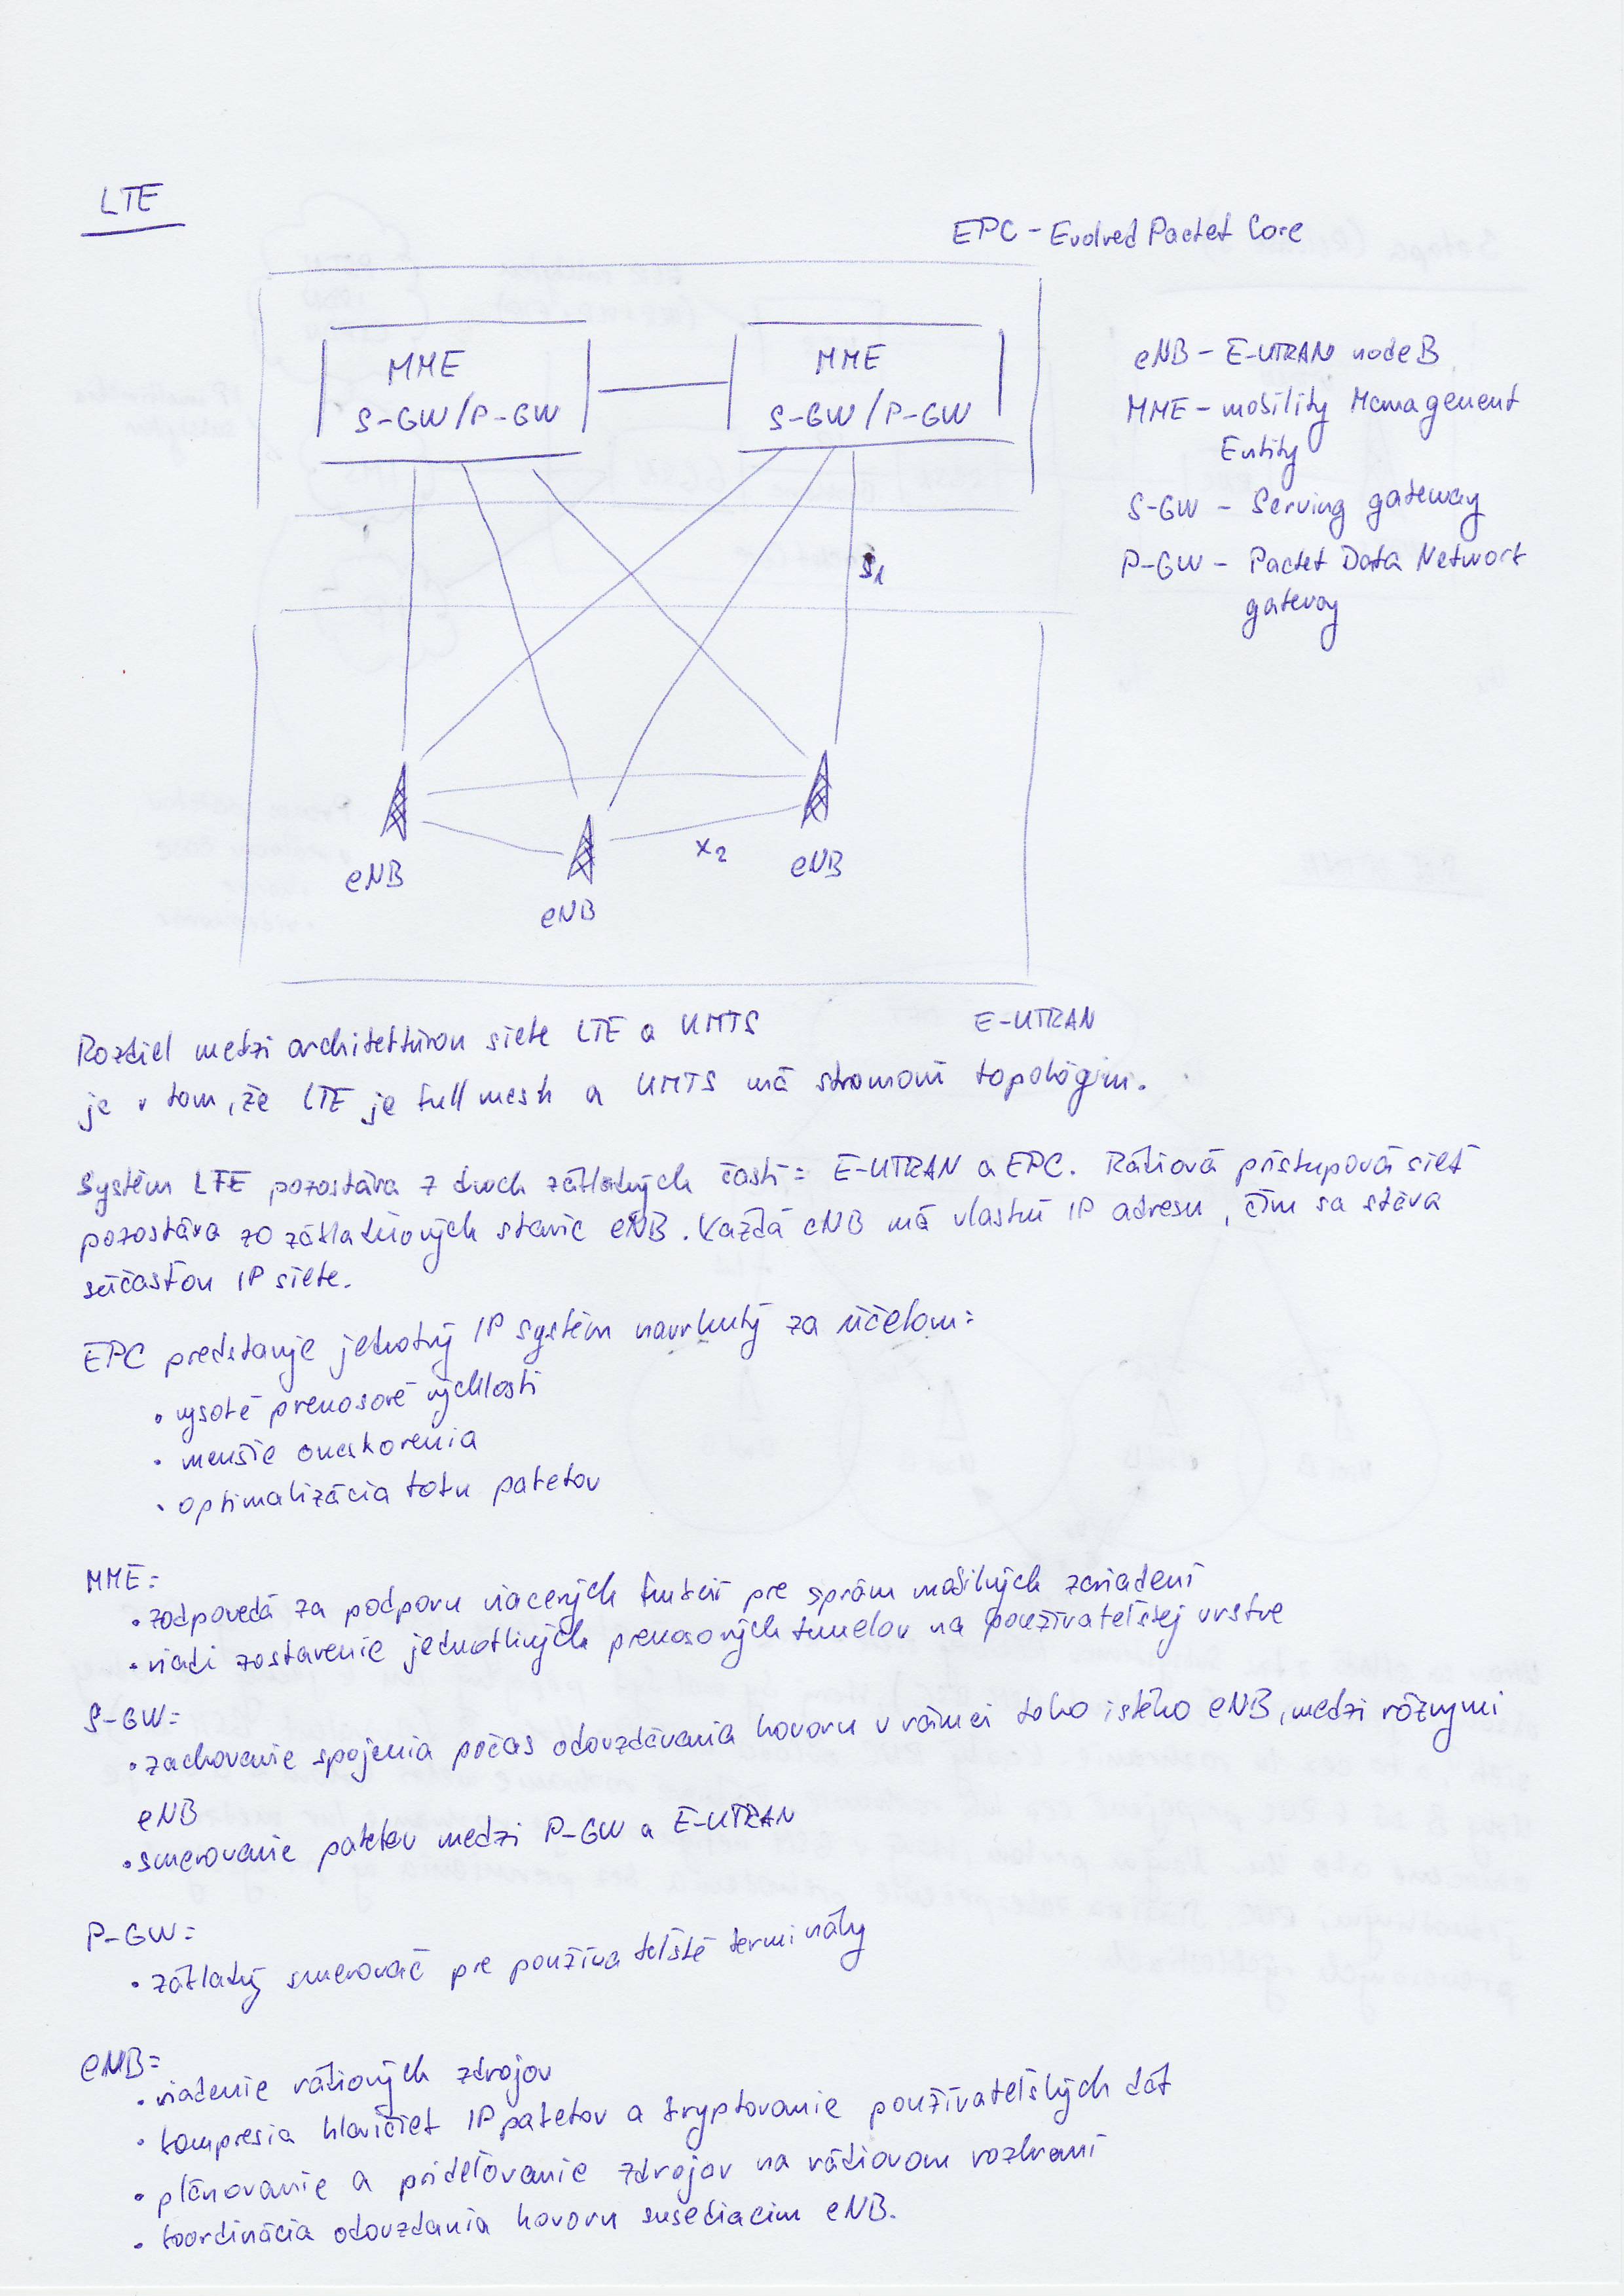 LTE
EPC - Evolved Packet Core
MME
S-GW/P-GW
MME
S-GW/P-GW
eNB - E-UTRAN node B
MME - mobility Management
Entity
S-GW - Serving gateway
P-GW - Packet Data Network
gateway
S1
X2
eNB
eNB
eNB
E-UTRAN
Rozdiel medzi architektúrou siete LTE a UMTS
je v tom, že LTE je full mesh a UMTS má stromovú topológiu.
Systém LTE pozostáva z dvoch základných častí: E-UTRAN a EPC. Rádiová prístupová sieť
pozostáva zo základňových staníc eNB. Každá eNB má vlastnú IP adresu, čím sa stáva
súčasťou IP siete.
EPC predstavuje jednotný IP systém navrhnutý za účelom:
• vysoké prenosové rýchlosti
• menšie oneskorenia
• optimalizácia toku paketov
MME:
• zodpovedá za podporu viacerých funkcií pre správu mobilných zariadení
• riadi zostavenie jednotlivých prenosových tunelov na používateľskej vrstve
S-GW:
• zachovanie spojenia počas odovzdávania hovoru v rámci toho istého eNB, medzi rôznymi
eNB
• smerovanie paketov medzi P-GW a E-UTRAN
P-GW:
• základný smerovač pre používateľské terminály
eNB:
• riadenie rádiových zdrojov
• kompresia hlavičiek IP paketov a kryptovanie používateľských dát
• plánovanie a prideľovanie zdrojov na rádiovom rozhraní
• koordinácia odovzdania hovoru susediacim eNB.